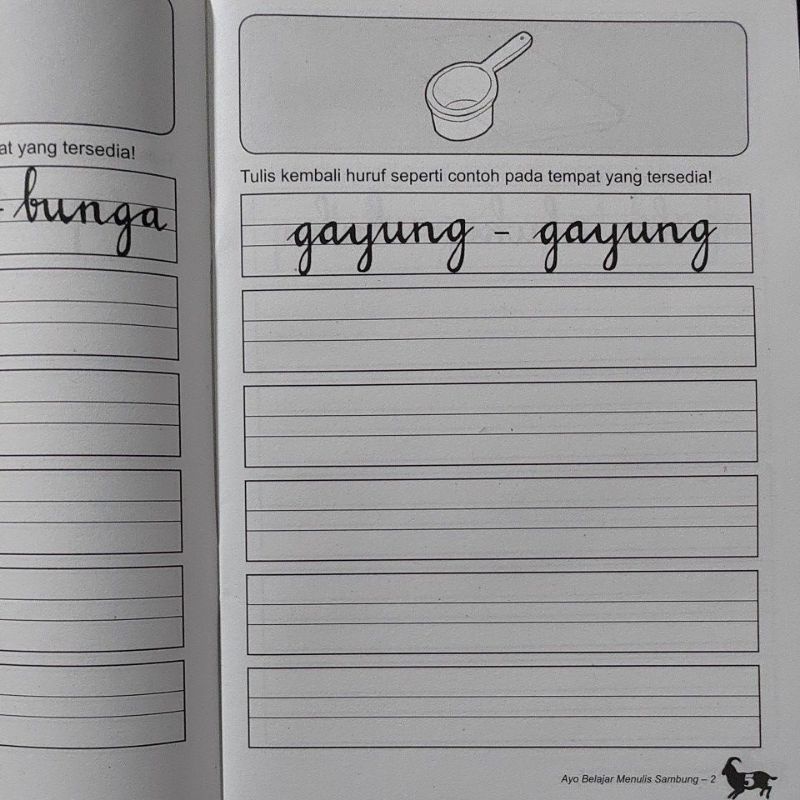 at yang tersedia!
- bunga
Tulis kembali huruf seperti contoh pada tempat yang tersedia!
gayung - gayung
Ayo Belajar Menulis Sambung – 2
5